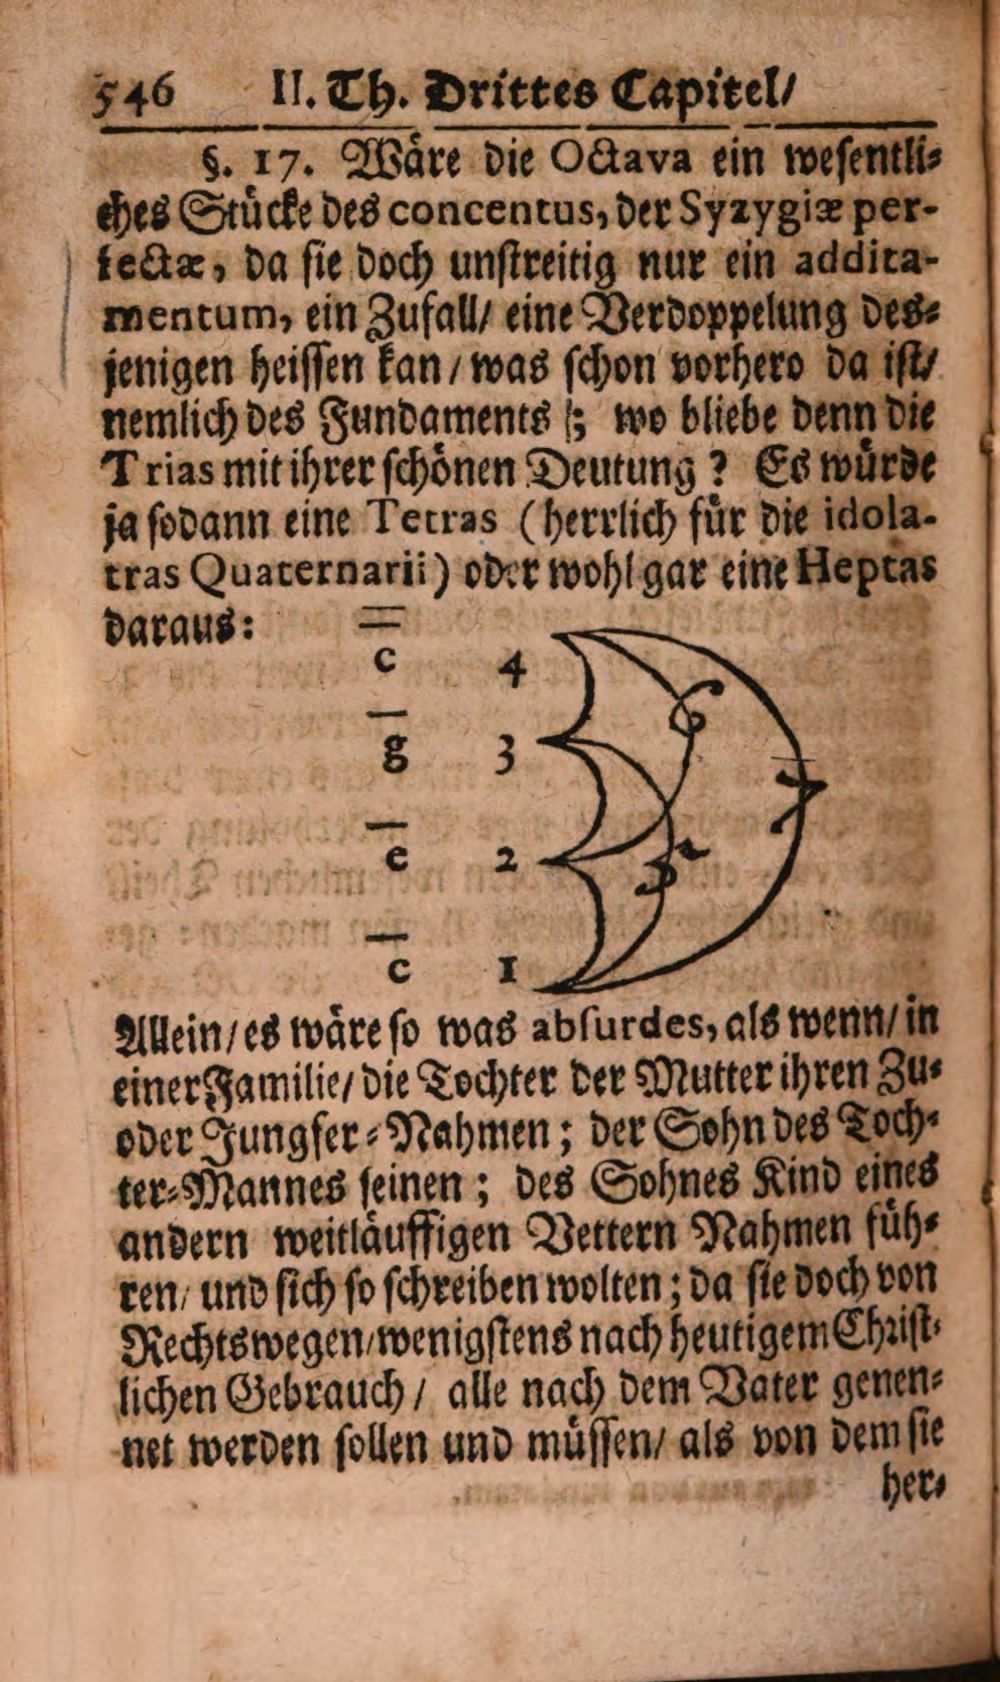 546 II. Th. Drittes Capitel/
§. 17. Wäre die Octava ein wesentli⸗
ches Stücke des concentus, der Syzygiæ per-
fectæ, da sie doch unstreitig nur ein addita-
mentum, ein Zufall/ eine Verdoppelung des⸗
jenigen heissen kan/ was schon vorhero da ist/
nemlich des Fundaments; wo bliebe denn die
Trias mit ihrer schönen Deutung? Es würde
ja sodann eine Tetras (herrlich für die idola-
tras Quaternarii) oder wohl gar eine Heptas
daraus:
c 4
g 3
e 2
c 1
6
7
5
Allein/ es wäre so was absurdes, als wenn/ in
einer Familie/ die Tochter der Mutter ihren Zu⸗
oder Jungfer⸗Nahmen; der Sohn des Toch⸗
ter⸗Mannes seinen; des Sohnes Kind eines
andern weitläuffigen Vettern Nahmen füh⸗
ren/ und sich so schreiben wolten; da sie doch von
Rechtswegen/ wenigstens nach heutigem Christ⸗
lichen Gebrauch/ alle nach dem Vater genen⸗
net werden sollen und müssen/ als von dem sie
her⸗